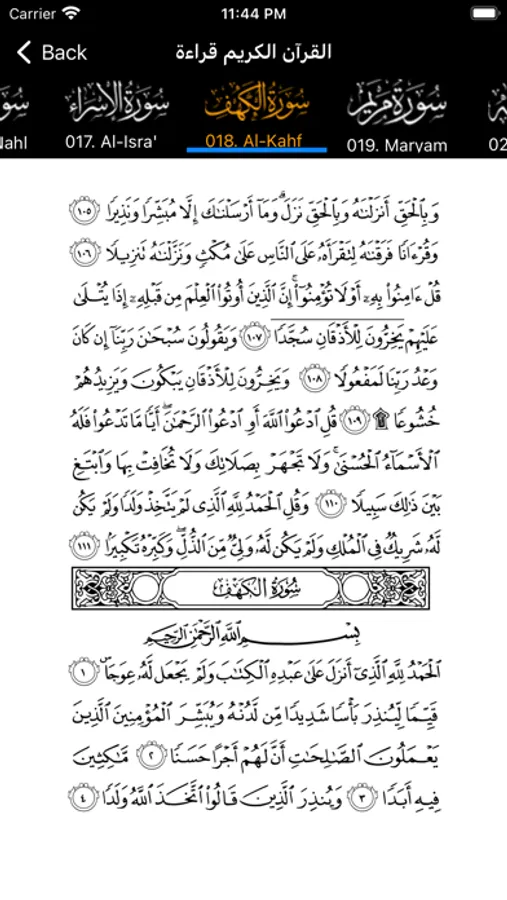 Carrier 11:44 PM
Back القرآن الكريم قراءة
سورة الإسراء سورة الكهف سورة مريم
Nahl 017. Al-Isra' 018. Al-Kahf 019. Maryam 02
وَبِٱلْحَقِّ أَنزَلْنَٰهُ وَبِٱلْحَقِّ نَزَلَ ۗ وَمَآ أَرْسَلْنَٰكَ إِلَّا مُبَشِّرًا وَنَذِيرًا ١٠٥
وَقُرْءَانًا فَرَقْنَٰهُ لِتَقْرَأَهُۥ عَلَى ٱلنَّاسِ عَلَىٰ مُكْثٍ وَنَزَّلْنَٰهُ تَنزِيلًا ١٠٦
قُلْ ءَامِنُوا۟ بِهِۦٓ أَوْ لَا تُؤْمِنُوٓا۟ ۚ إِنَّ ٱلَّذِينَ أُوتُوا۟ ٱلْعِلْمَ مِن قَبْلِهِۦٓ إِذَا يُتْلَىٰ
عَلَيْهِمْ يَخِرُّونَ لِلْأَذْقَانِ سُجَّدًا ١٠٧ وَيَقُولُونَ سُبْحَٰنَ رَبِّنَآ إِن كَانَ
وَعْدُ رَبِّنَا لَمَفْعُولًا ١٠٨ وَيَخِرُّونَ لِلْأَذْقَانِ يَبْكُونَ وَيَزِيدُهُمْ
خُشُوعًا ۩ ١٠٩ قُلِ ٱدْعُوا۟ ٱللَّهَ أَوِ ٱدْعُوا۟ ٱلرَّحْمَٰنَ ۖ أَيًّا مَّا تَدْعُوا۟ فَلَهُ
ٱلْأَسْمَآءُ ٱلْحُسْنَىٰ ۚ وَلَا تَجْهَرْ بِصَلَاتِكَ وَلَا تُخَافِتْ بِهَا وَٱبْتَغِ
بَيْنَ ذَٰلِكَ سَبِيلًا ١١٠ وَقُلِ ٱلْحَمْدُ لِلَّهِ ٱلَّذِى لَمْ يَتَّخِذْ وَلَدًا وَلَمْ يَكُن
لَّهُۥ شَرِيكٌ فِى ٱلْمُلْكِ وَلَمْ يَكُن لَّهُۥ وَلِىٌّ مِّنَ ٱلذُّلِّ ۖ وَكَبِّرْهُ تَكْبِيرًۢا ١١١
سُورَةُ الكَهْفِ
بِسْمِ ٱللَّهِ ٱلرَّحْمَٰنِ ٱلرَّحِيمِ
ٱلْحَمْدُ لِلَّهِ ٱلَّذِىٓ أَنزَلَ عَلَىٰ عَبْدِهِ ٱلْكِتَٰبَ وَلَمْ يَجْعَل لَّهُۥ عِوَجَا ۜ ١
قَيِّمًا لِّيُنذِرَ بَأْسًا شَدِيدًا مِّن لَّدُنْهُ وَيُبَشِّرَ ٱلْمُؤْمِنِينَ ٱلَّذِينَ
يَعْمَلُونَ ٱلصَّٰلِحَٰتِ أَنَّ لَهُمْ أَجْرًا حَسَنًا ٢ مَّٰكِثِينَ
فِيهِ أَبَدًا ٣ وَيُنذِرَ ٱلَّذِينَ قَالُوا۟ ٱتَّخَذَ ٱللَّهُ وَلَدًا ٤